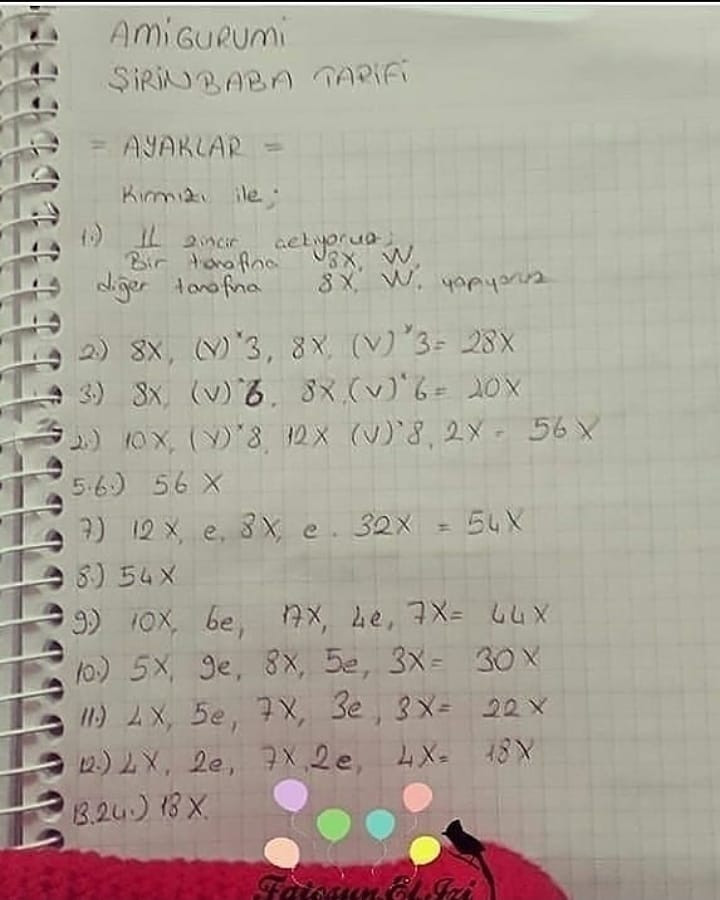 AMİGURUMİ
ŞİRİN BABA TARİFİ
= AYAKLAR =
Kırmızı ile;
1.) 11 zincir çekiyoruz;
Bir tarafına 8X, W,
diğer tarafına 8X, W. yapıyoruz
2.) 8X, (V)*3, 8X, (V)*3= 28X
3.) 8X, (V)*6, 8X,(V)*6= 20X
4.) 10X, (V)*8, 12X (V)*8, 2X = 56X
5.6.) 56X
7) 12X, e, 8X, e. 32X = 54X
8.) 54X
9.) 10X, 6e, 17X, 4e, 7X= 44X
10.) 5X, 9e, 8X, 5e, 3X= 30X
11.) 4X, 5e, 7X, 3e, 3X= 22X
12.) 4X, 2e, 7X, 2e, 4X= 18X
13.24.) 18X.
Fatosun El İzi